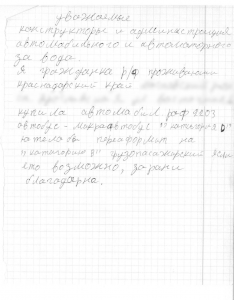 уважаемые
конструкторы и администрация
автомобильного и автомоторного
за вода.
Я гражданка р/ф проживаю
краснодарский край
купила автомобил раф 2203
автобус - микроавтобус "категория D"
хотела бы переоформит на
"категорию В" грузопасажирский если
это возможно, за рани
благодарна.